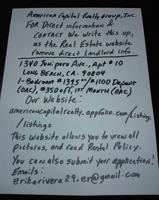 American Capital Realty Group, Inc.
For Direct information &
Contact We write this up,
as the Real Estate website
remove direct landlord info.
1340 Junipero Ave., Apt #10
Long Beach, CA. 90804
1-Bedroom #1395/$1100 Deposit
(OAC), $350 off, 1st Month (OAC)
Our Website:
americancapitalrealty.appfolio.com/listings
/listings
This website allows you to view all
Pictures, and read Rental Policy.
You can also submit your application!
Emails:
erikarivera29.er@gmail.com